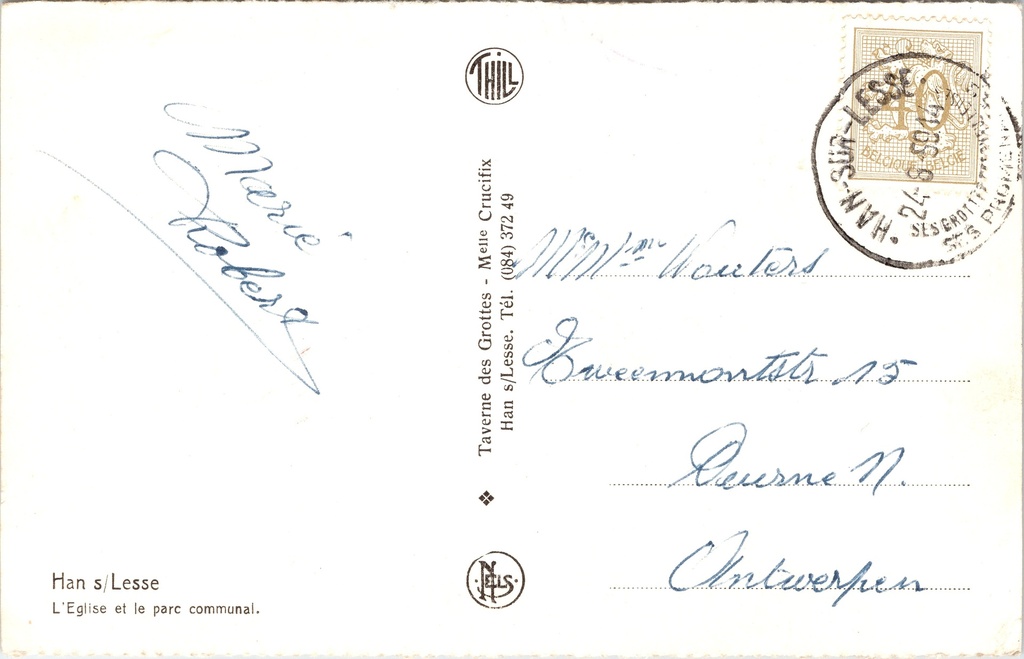 Marie
Robert
Han s/Lesse
L'Eglise et le parc communal.
THILL
Taverne des Grottes - Melle Crucifix
Han s/Lesse. Tél. (084) 372 49
NELS
40
BELGIQUE-BELGIË
HAN-SUR-LESSE
24-8 59
SES GROTTES
SES PROMEN
Wouters
15
Deurne N.
Antwerpen